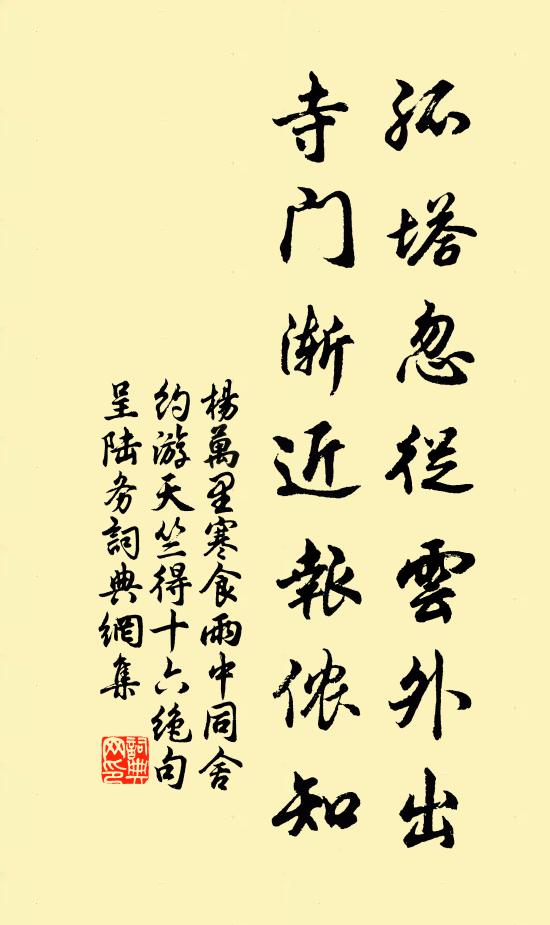 孤塔忽從雲外出
寺门漸近報侬知
楊萬里寒食雨中同舍
约游天竺得十六绝句
呈陆务詞典網集
詞典
网印